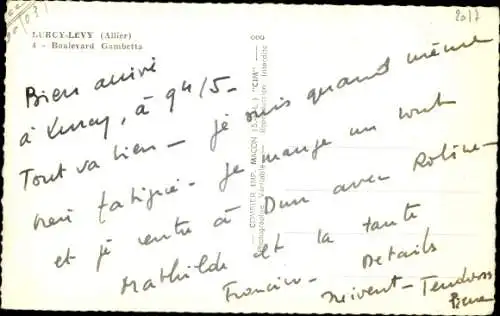 LURCY-LEVY (Allier)
4 - Boulevard Gambetta
2017
Bien arrivé
à Lurcy, à 9h15-
Tout va bien - je suis quand même
très fatigué - je mange un bout
et je rentre à Dun avec Roline-
Mathilde et la tante
Francine - Détails
suivent - Tendress
Pierre
COMBIER IMP. MACON (S.-&-L.) "CIM"
Reproduction Interdite